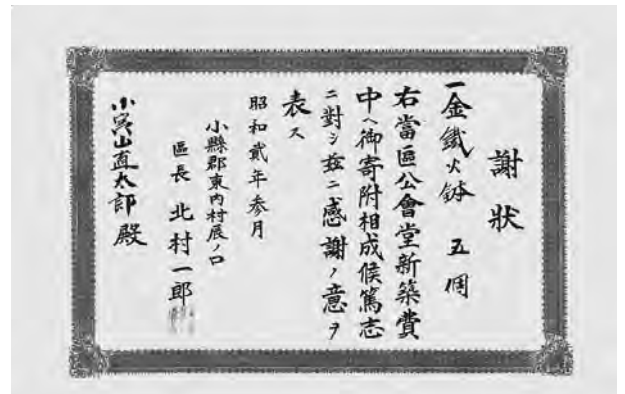 謝狀
一金鐵火鉢 五個
右當區公會堂新築費
中ヘ御寄附相成候篤志
ニ對シ玆ニ感謝ノ意ヲ
表ス
昭和貳年參月
小縣郡東內村辰ノ口
區長 北村一郎
小宮山直太郎殿